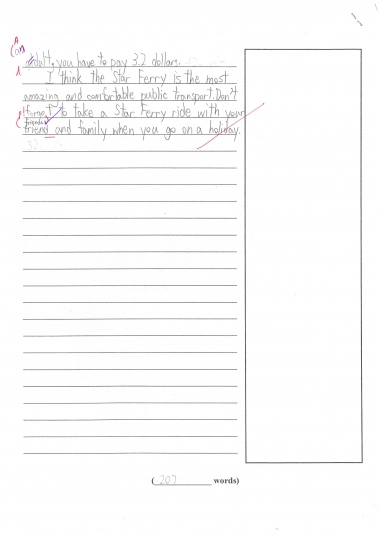 adult, you have to pay 3.2 dollars.
I think the Star Ferry is the most
amazing and comfortable public transport. Don't
forget to take a Star Ferry ride with your
friend and family when you go on a holiday.
32
( 207 words)